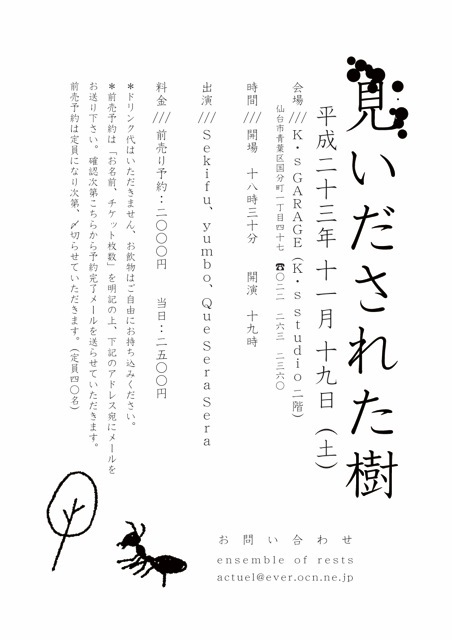 見いだされた樹
平成二十三年 十一月 十九日 (土)
会場///K・s GARAGE(K・s studio 二階)
仙台市青葉区国分町一丁目四十七 ☎〇二二 二六三 二三六〇
時間///開場 十八時三十分 開演 十九時
出演///Sekifu、yumbo、Que Sera Sera
料金///前売り予約:二〇〇〇円 当日:二五〇〇円
*ドリンク代はいただきません、お飲物はご自由にお持ち込みください。
*前売予約は「お名前、チケット枚数」を明記の上、下記のアドレス宛にメールを
お送り下さい。確認次第こちらから予約完了メールを送らせていただきます。
前売予約は定員になり次第、〆切らせていただきます。(定員四〇名)
お問い合わせ
ensemble of rests
actuel@ever.ocn.ne.jp